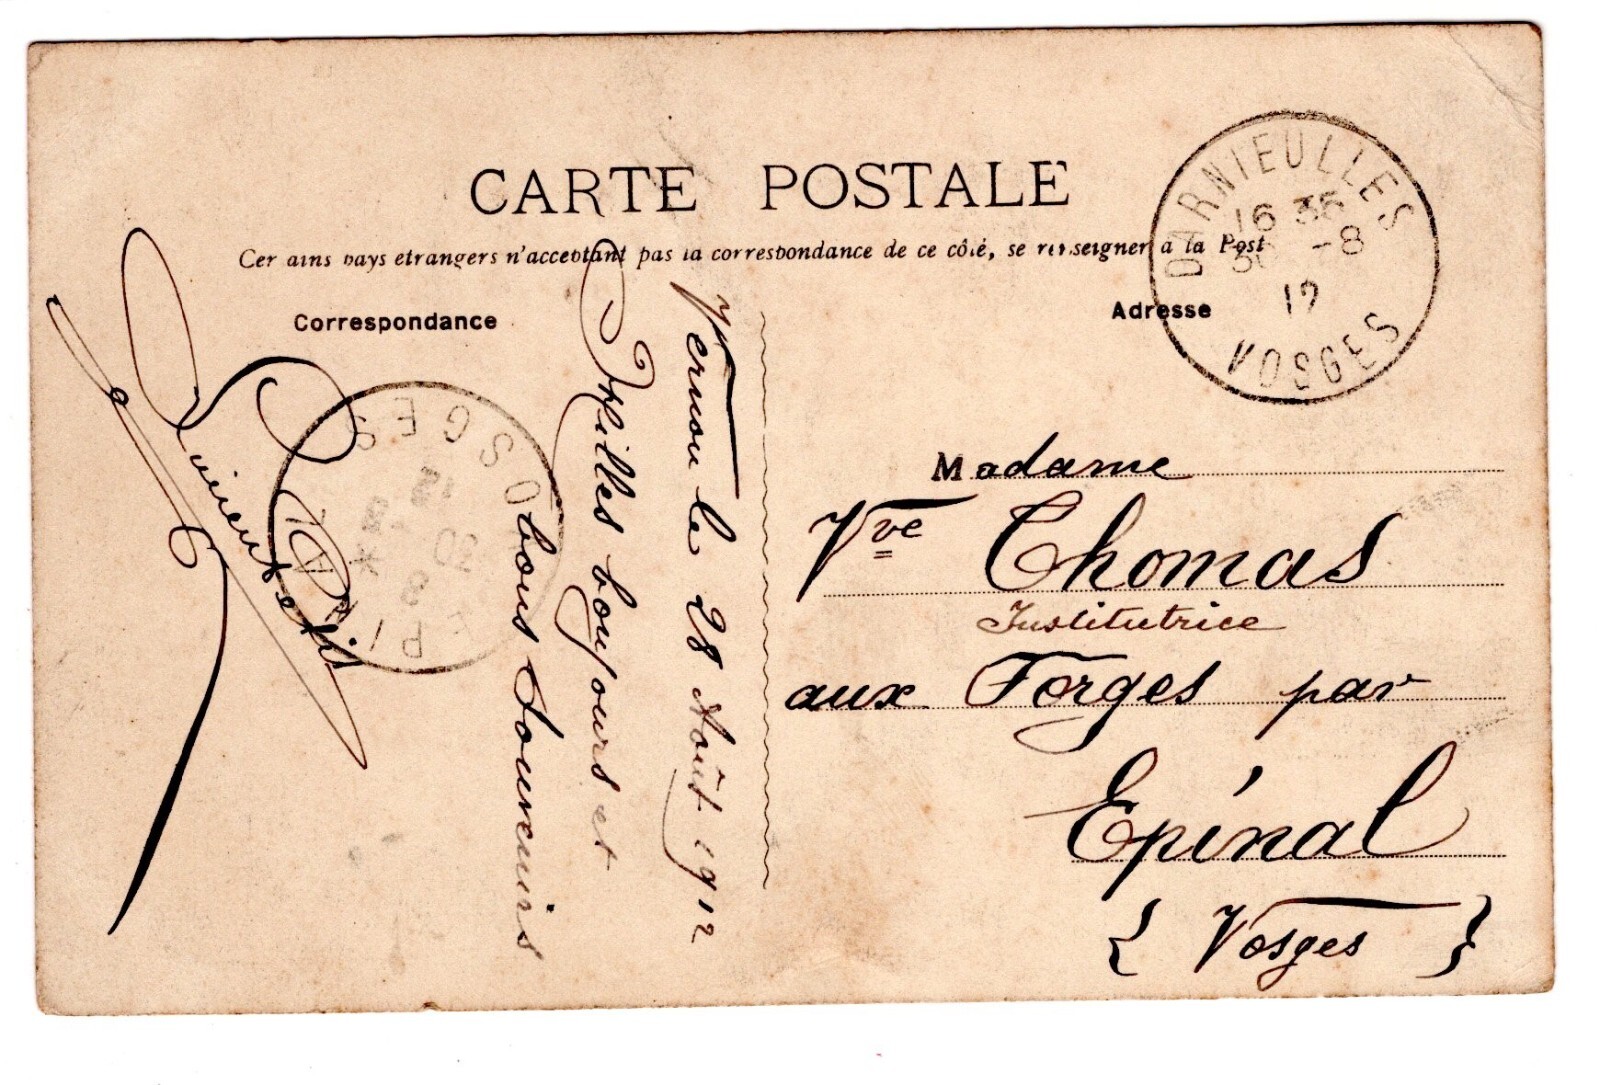 CARTE POSTALE
Certains pays etrangers n'acceptant pas la correspondance de ce côté, se renseigner a la Post
Correspondance
Adresse
DARNIEULLES
16 35
30 -8
12
VOSGES
Vernon le 28 Août 1912
Milles bonjours et
bons Souvenirs
EPINAL
VOSGES
30
8
12
Madame
Vve Thomas
Institutrice
aux Forges par
Epinal
{ Vosges }